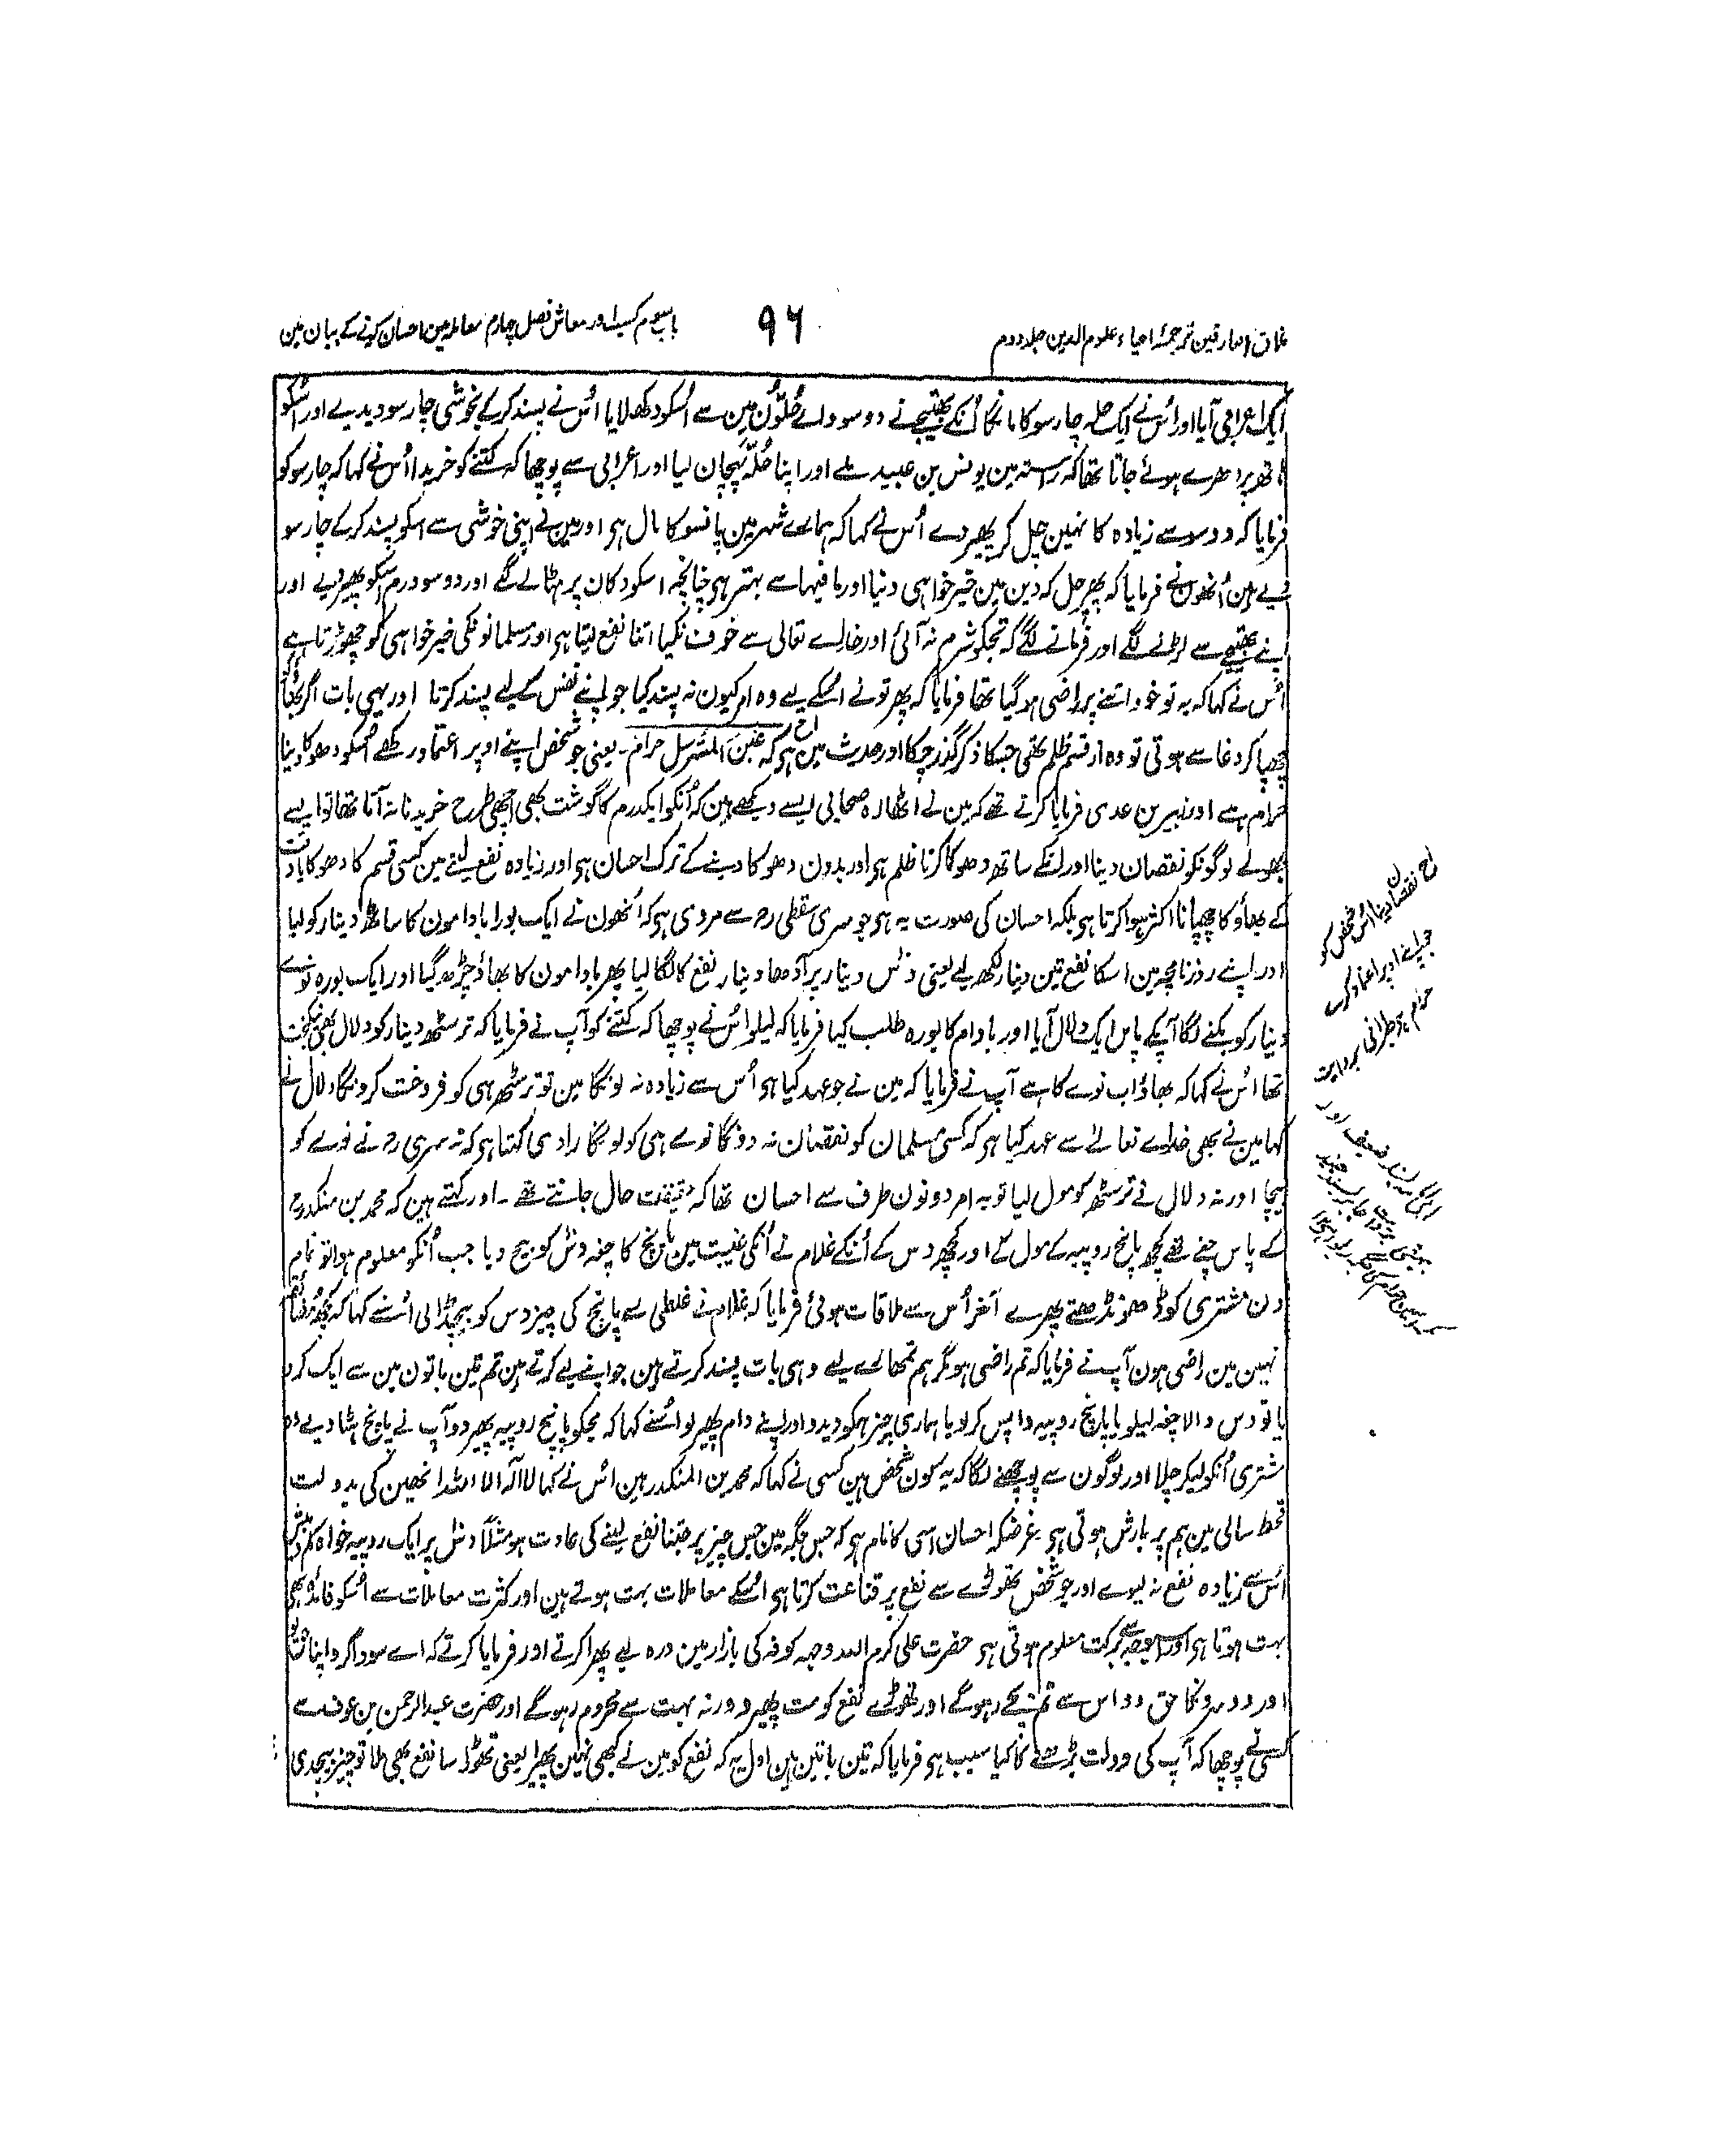 مذاق العارفین ترجمۂ احیاء علوم الدین جلد دوم
۹۶
باب سوم کسب اور معاش فصل چہارم معاملہ مین احسان کرنے کے بیان مین
ایک اعرابی آیا اور اُس نے ایک حلہ چار سو کا مانگا اُنکے بھتیجے نے دو سو والے حُلّوُن مین سے اُسکو دکھلایا اُس نے پسند کرکے بخوشی چار سو دیدیے اور اُسکو
ہاتھ پر دھرے ہوئے جاتا تھا کہ رستہ مین یونس بن عبید ملے اور اپنا حُلّہ پہچان لیا اور اعرابی سے پوچھا کہ کتنے کو خریدا اُس نے کہا کہ چار سو کو
فرمایا کہ دو سو سے زیادہ کا نہین چل کر پھیر دے اُس نے کہا کہ ہمارے شہر مین پانسو کا مال ہو اور مین نے اپنی خوشی سے اسکو پسند کرکے چار سو
دیے ہین اُنھون نے فرمایا کہ پھر چل کہ دین مین خیر خواہی دنیا اور ما فیہا سے بہتر ہو چنانچہ اسکو دکان پر ہٹا لے گئے اور دو سو درم اسکو پھیر دیے اور
اپنے بھتیجے سے لڑنے لگے اور فرمانے لگے کہ تجکو شرم نہ آئی اور خداے تعالی سے خوف نکیا اتنا نفع لیتا ہو اور مسلمانونکی خیر خواہی کو چھوڑتا ہے
اُس نے کہا کہ یہ تو خود اتنے پر راضی ہو گیا تھا فرمایا کہ پھر تو نے اُسکے لیے وہ امر کیون نہ پسند کیا جو اپنے نفس کے لیے پسند کرتا اور یہی بات اگر بھاؤ
چھپا کر دغا سے ہوتی تو وہ از قسم ظلم تھی جسکا ذکر گذر چکا اور حدیث مین ہو کہ غبن المسترسل حرام۔ یعنی جو شخص اپنے اوپر اعتماد رکھے اُسکو دھوکا دینا
حرام ہے اور زبیر بن عدی فرمایا کرتے تھے کہ مین نے اٹھارہ صحابی ایسے دیکھے ہین کہ اُنکو ایکدرم کا گوشت بھی اچھی طرح خریدنا نہ آتا تھا تو ایسے
بھولے لوگونکو نقصان دینا اور اُنکے ساتھ دھوکا کرنا ظلم ہو اور بدون دھوکا دینے کے ترک احسان ہو اور زیادہ نفع لینے مین کسی قسم کا دھوکا یا وقت
کے بھاؤ کا چھپانا اکثر ہوا کرتا ہو بلکہ احسان کی صورت یہ ہو جو سری سقطی رحہ سے مروی ہو کہ اُنھون نے ایک بورا بادامون کا ساٹھ دینار کو لیا
اور اپنے روزنامچہ مین اسکا نفع تین دینار لکھ لیے یعنی دس دینار پر آدھا دینار نفع کا لگا لیا پھر بادامون کا بھاؤ چڑھ گیا اور ایک بورہ نوے
دینار کو بکنے لگا آپکے پاس ایک دلال آیا اور بادام کا بورہ طلب کیا فرمایا کہ لیلو اُس نے پوچھا کہ کتنے کو آپ نے فرمایا کہ ترسٹھ دینار کو دلال بھی نیکبخت
تھا اُس نے کہا کہ بھاؤ اب نوے کا ہے آپ نے فرمایا کہ مین نے جو عہد کیا ہو اُس سے زیادہ نہ لونگا مین تو ترسٹھ ہی کو فروخت کرونگا دلال نے
کہا مین نے بھی خداے تعالےٰ سے عہد کیا ہو کہ کسی مسلمان کو نقصان نہ دونگا نوے ہی کو لونگا راوی کہتا ہو کہ نہ سری رحہ نے نوے کو
بیچا اور نہ دلال نے ترسٹھ کو مول لیا تو یہ امر دونون طرف سے احسان تھا کہ حقیقت حال جانتے تھے۔ اور کہتے ہین کہ محمد بن منکدر رح
کے پاس چغے تھے کچھ پانچ روپیہ کے مول کے اور کچھ دس کے اُنکے غلام نے اُنکی غیبت مین پانچ کا چغہ دس کو بیچ دیا جب اُنکو معلوم ہوا تو تمام
دن مشتری کو ڈھونڈھتے پھرے آخر اُس سے ملاقات ہوئی فرمایا کہ غلام نے غلطی سے پانچ کی چیز دس کو بیچڈالی اُسنے کہا کہ کچھ مضائقہ
نہین مین راضی ہون آپ نے فرمایا کہ تم راضی ہو مگر ہم تمھارے لیے وہی بات پسند کرتے ہین جو اپنے لیے کرتے ہین تم تین باتون مین سے ایک کرو
یا تو دس والا چغہ لیلو یا پانچ روپیہ واپس کرلو یا ہماری چیز ہمکو دیدو اور اپنے دام پھیر لو اُسنے کہا کہ مجکو پانچ روپیہ پھیر دو آپ نے پانچ ہٹا دیے وہ
مشتری اُنکو لیکر چلا اور لوگون سے پوچھنے لگا کہ یہ کون شخص ہین کسی نے کہا کہ محمد بن المنکدر ہین اُس نے کہا لا الہ الا اللہ انھین کی بدولت
قحط سالی مین ہم پر بارش ہوتی ہو غرضکہ احسان اسی کا نام ہو کہ جس جگہ مین جس چیز پر جتنا نفع لینے کی عادت ہو مثلاً دس پر ایک روپیہ خواہ کم و بیش
اُس سے زیادہ نفع نہ لیوے اور جو شخص تھوڑے سے نفع پر قناعت کرتا ہو اُسکے معاملات بہت ہوتے ہین اور کثرت معاملات سے اُسکو فائدہ بھی
بہت ہوتا ہو اور اسیوجہ سے برکت معلوم ہوتی ہو حضرت علی کرم اللہ وجہہ کوفہ کی بازار مین درہ لیے پھرا کرتے اور فرمایا کرتے کہ اے سوداگرو اپنا حق لو
اور دوسرونکا حق دو اس سے تم بچے رہوگے اور تھوڑے نفع کو مت پھیرو ورنہ بہت سے محروم رہوگے اور حضرت عبدالرحمن بن عوف سے
کسی نے پوچھا کہ آپ کی دولت بڑھنے کا کیا سبب ہو فرمایا کہ تین باتین ہین اول یہ کہ نفع کو مین نے کبھی نہین پھیرا یعنی تھوڑا سا نفع بھی ملا تو چیز بیچدی
نقصان دینا اُس شخص کو
جو اپنے اوپر اعتماد کرے
حرام ہو طبرانی بروایت